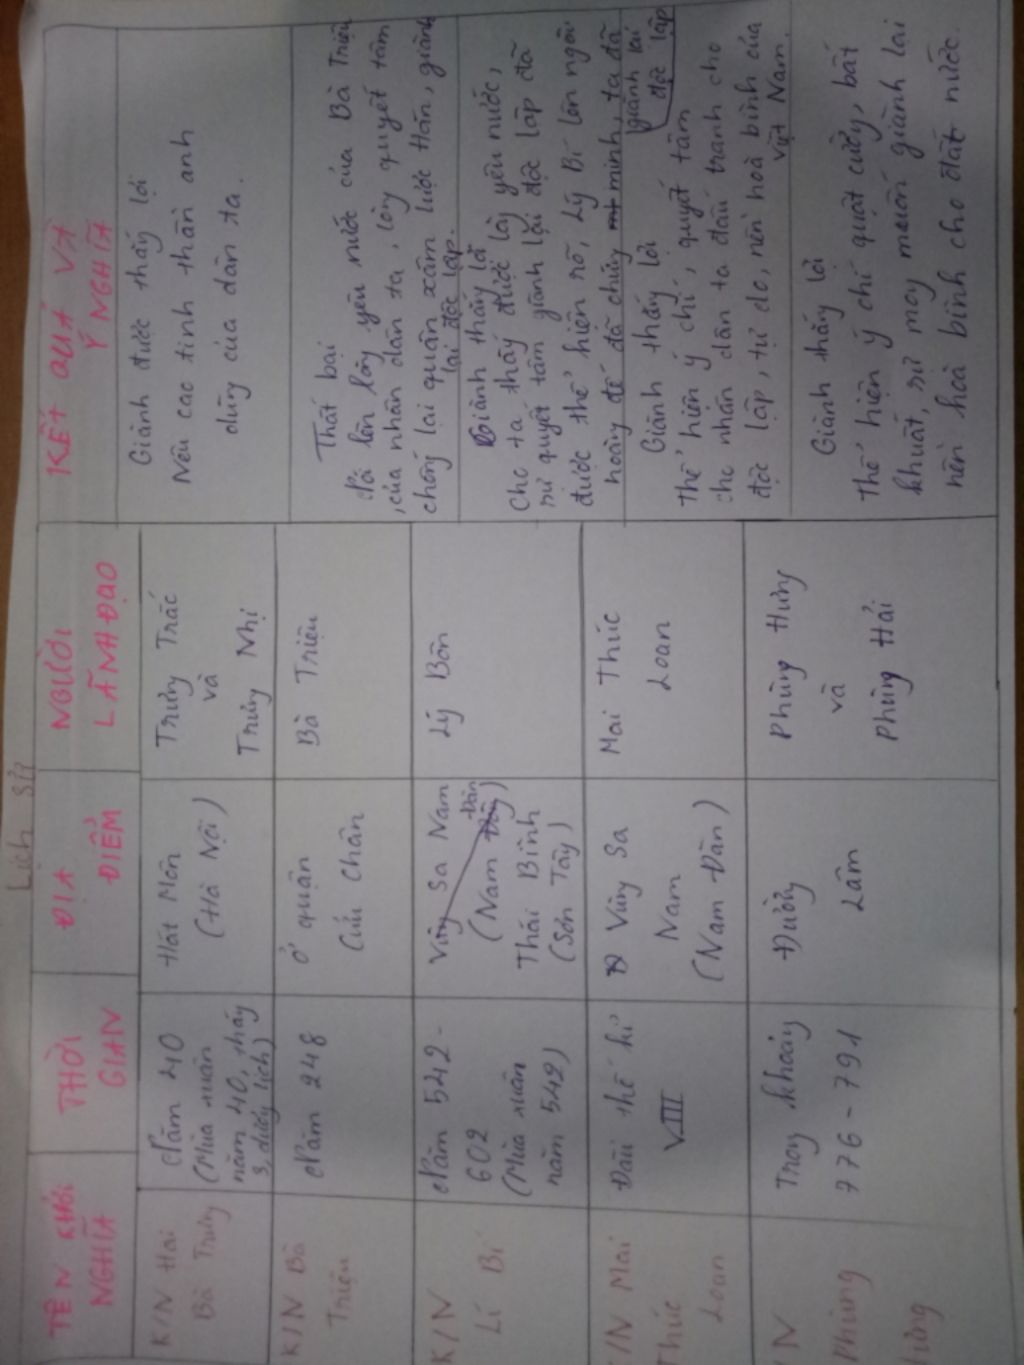 Lịch sử
TÊN KHỞI
NGHĨA
THỜI
GIAN
ĐỊA
ĐIỂM
NGƯỜI
LÃNH ĐẠO
KẾT QUẢ VÀ
Ý NGHĨA
K/N Hai
Bà Trưng
Năm 40
(Mùa xuân
năm 40, tháng
3, dương lịch)
Hát Môn
(Hà Nội)
Trưng Trắc
và
Trưng Nhị
Giành được thắng lợi
Nêu cao tinh thần anh
dũng của dân ta.
K/N Bà
Triệu
Năm 248
ở quận
Cửu Chân
Bà Triệu
Thất bại
Nói lên lòng yêu nước của Bà Triệu
, của nhân dân ta, lòng quyết tâm
chống lại quân xâm lược Hán, giành
lại độc lập.
K/N
Lí Bí
Năm 542-
602
(Mùa xuân
năm 542)
Vùng Sa Nam
(Nam Đàn)
Thái Bình
(Sơn Tây)
Lý Bôn
Giành thắng lợi
Cho ta thấy được lòng yêu nước,
sự quyết tâm giành lại độc lập đã
được thể hiện rõ, Lý Bí lên ngôi
hoàng đế đã chứng minh, ta đã
giành lại
độc lập
/N Mai
Thúc
Loan
Đầu thế kỉ
VIII
Vùng Sa
Nam
(Nam Đàn)
Mai Thúc
Loan
Giành thắng lợi
Thể hiện ý chí, quyết tâm
cho nhân dân ta đấu tranh cho
độc lập, tự do, nền hoà bình của
Việt Nam.
N
Phùng
ưng
Trong khoảng
776 - 791
Đường
Lâm
Phùng Hưng
và
Phùng Hải
Giành thắng lợi
Thể hiện ý chí quật cường, bất
khuất, sự mong muốn giành lại
nền hoà bình cho đất nước.